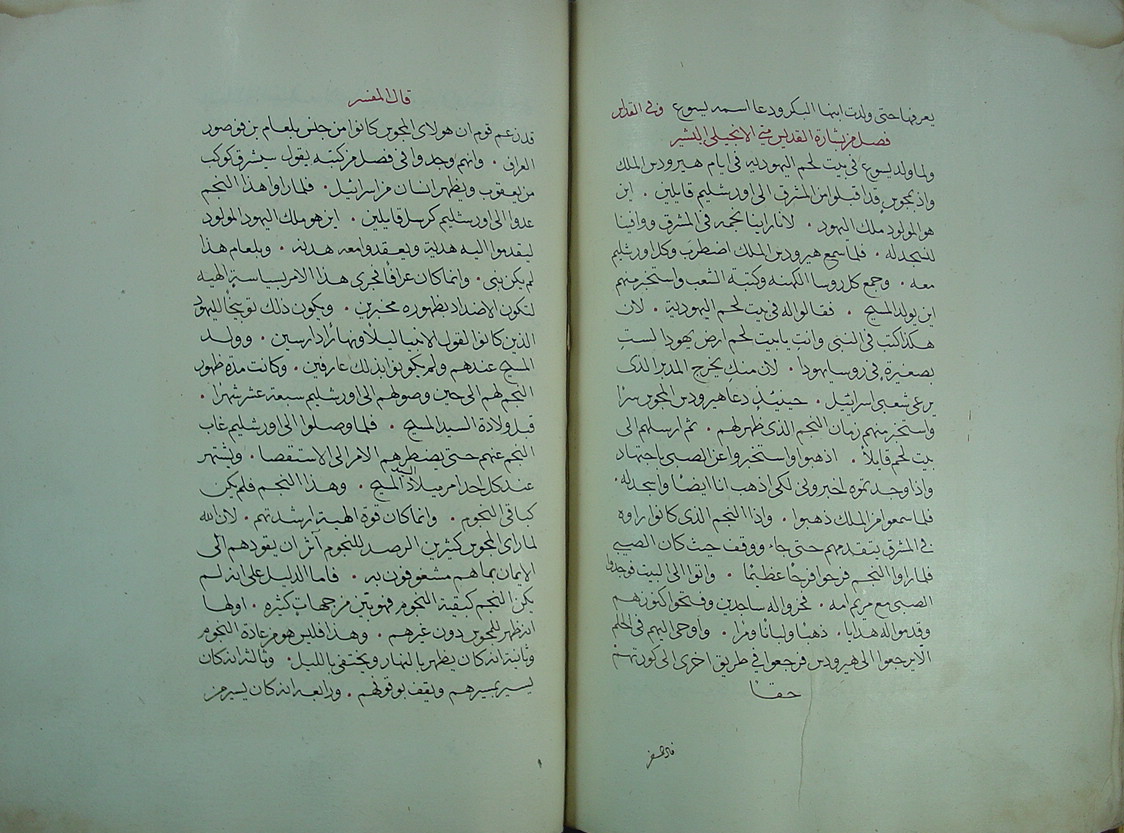 يعرفها حتى ولدت ابنها البكر ودعا اسمه ليسوع وفى القداس
فصل من بشارة القديس متى الانجيلي البشير
ولما ولد يسوع فى بيت لحم اليهوديه فى ايام هيرودس الملك
واذ مجوس قد اقبلوا من المشرق الى اورشليم قايلين . اين
هو المولود ملك اليهود . لاننا راينا نجمه فى المشرق ووافينا
لنسجد له . فلما سمع هيرودس الملك اضطرب وكل اورشليم
معه . وجمع كل روسا الكهنه وكتبة الشعب واستخبر منهم
اين يولد المسيح . فقالوا له فى بيت لحم اليهودية . لان
هكذا كتب فى النبى وانت يا بيت لحم ارض يهودا لست
بصغيرة فى روسا يهودا . لان منك يخرج المدبر الذى
يرعى شعبى اسرائيل . حينيذٍ دعا هيرودس المجوس سرًا
واستخبر منهم زمان النجم الذى ظهر لهم . ثم ارسلهم الى
بيت لحم قايلاً . اذهبوا واستخبروا عن الصبى باجتهاد
واذا وجدتموه اخبرونى لكى اذهب انا ايضًا واسجد له .
فلما سمعوا من الملك ذهبوا . واذا النجم الذى كانوا راوه
فى المشرق يتقدمهم حتى جاء ووقف حيث كان الصبى
فلما راوا النجم فرحوا فرحًا عظيمًا . واتوا الى البيت فوجدوا
الصبى مع مريم امه . فخروا له ساجدين وفتحوا كنوزهم
وقدموا له هدايا . ذهبًا ولبانًا ومرًا . واوحى اليهم فى الحلم
الا يرجعوا الى هيرودس فرجعوا فى طريق اخرى الى كورتهم
حقًا
قال المفسر
قال المفسر
قد زعم قوم ان هولاى المجوس كانوا من جنس بلعام بن فوصور
العراف . وانهم وجدوا فى فصل من كتبه يقول سيشرق كوكب
من يعقوب ويظهر انسان من اسرائيل . فلما راوا هذا النجم
عدوا الى اورشليم كرسل قايلين . اين هو ملك اليهود المولود
ليقدموا اليه هدية ويعقدوا معه هدنة . وبلعام هذا
لم يكن نبى . وانما كان عرافا فجرى هذا الامر بسياسةٍ الهيه
لتكون الاضداد بظهوره مخبرين . ويكون ذلك توبيخًا لليهود
الذين كانوا لقول الانبيا ليلاً ونهارًا دارسين . وولد
المسيح عندهم ولم يكونوا بذلك عارفين . وكانت مدة ظهور
النجم لهم الى حين وصولهم الى اورشليم سبعة عشر شهرًا .
قبل ولادة السيد المسيح . فلما وصلوا الى اورشليم غاب
النجم عنهم حتى يضطرهم الامر الى الاستقصا . ويشتهر
عند كل احد امر ميلاد السيد المسيح . وهذا النجم فلم يكن
كباقى النجوم . وانما كان قوة الهية ارشدتهم . لان الله
لما راى المجوس كثيرين الرصد للنجوم آثر ان يقودهم الى
الايمان بما هم مشغوفون به . فاما الدليل على انه لم
يكن النجم كبقية النجوم فهو بيّن من جهاتٍ كثيره . اولها
انه ظهر للمجوس دون غيرهم . وهذا فليس هو من عادة النجوم
وثانية انه كان يظهر بالنهار ويختفى بالليل . وثالثه انه كان
يسير بمسيرهم ويقف بوقوفهم . ورابعه انه كان يسير من